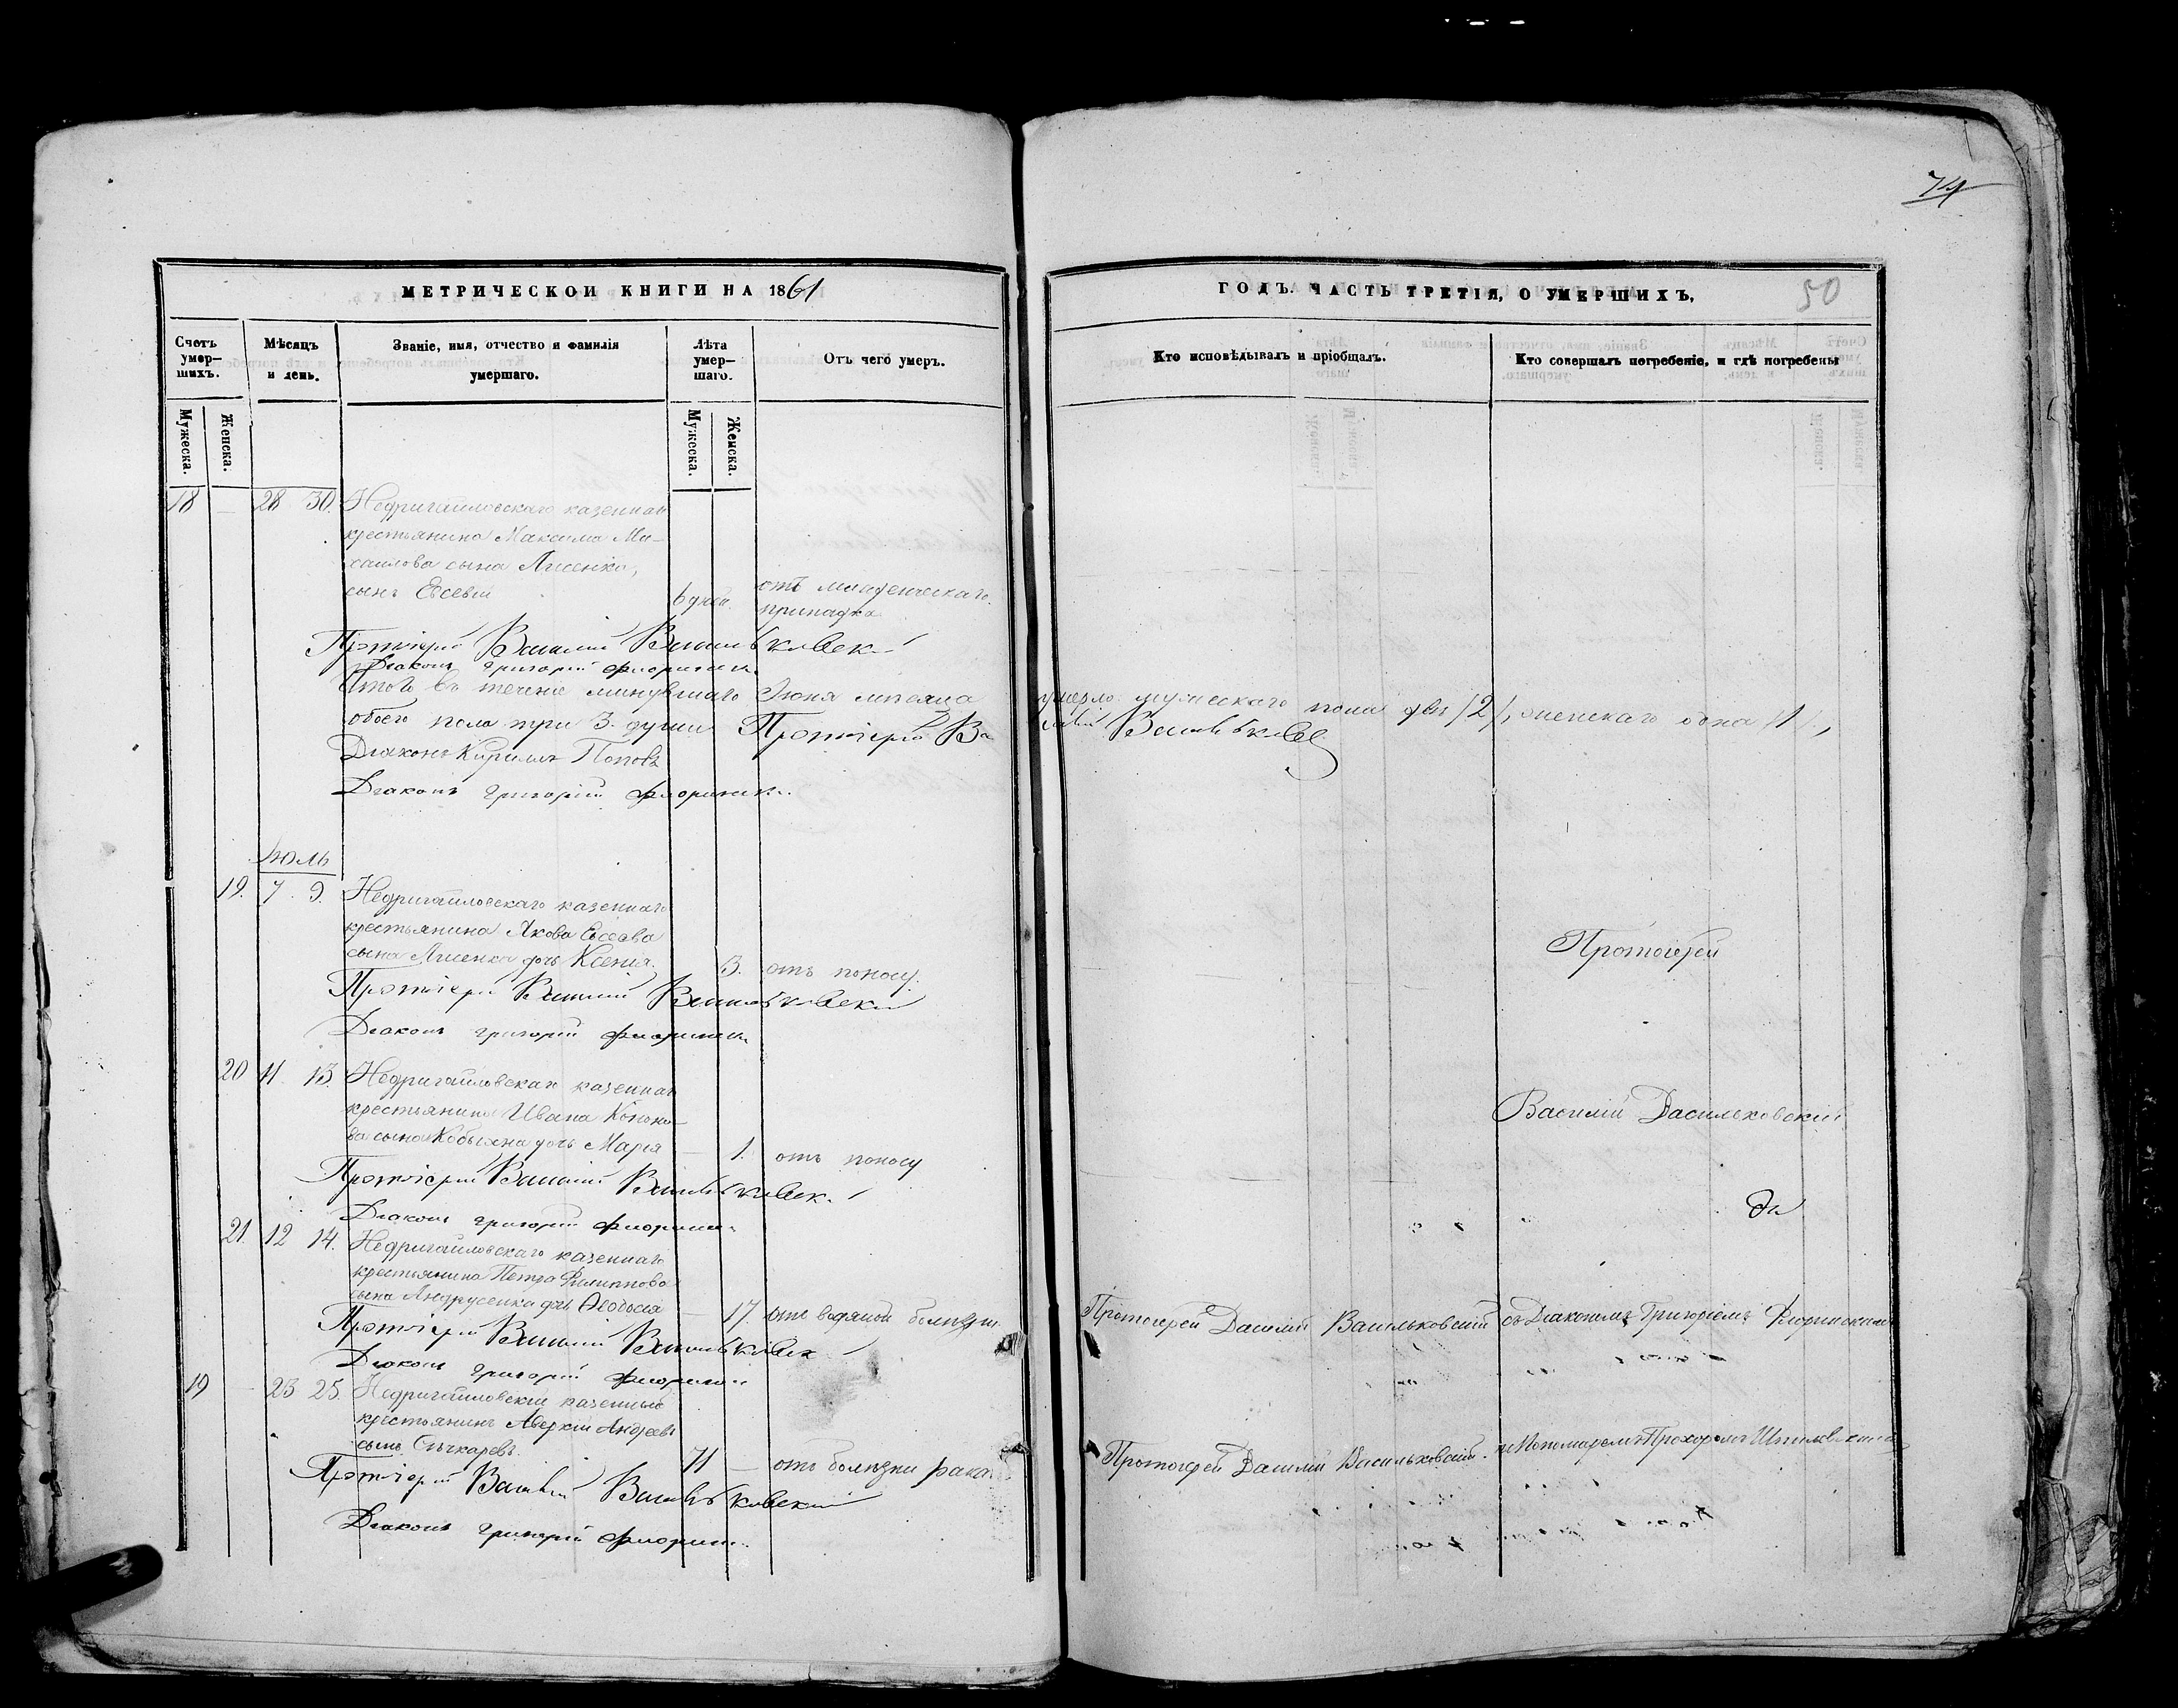 74
МЕТРИЧЕСКОЙ КНИГИ НА 1861
ГОДЪ. ЧАСТЬ ТРЕТІЯ, О УМЕРШИХЪ,
50
Счетъ умер-шихъ.
Мѣсяцъ и день.
Званіе, имя, отчество и фамилія умершаго.
Лѣта умер-шаго.
Отъ чего умеръ.
Кто исповѣдывалъ и пріобщалъ.
Кто совершалъ погребеніе, и гдѣ погребены
Мужеска.
Женска.
Мужеска.
Женска.
18 — 28 30. Недригайловскаго казеннаго
крестьянина Максима Ми-
хаилова сына Лисенка,
сынъ Евсевій 6 дней. отъ младенческаго
припадка
Протоіерей Василій Васильковскій
Діаконъ Григорій Флоринскій
Итого въ теченіе минувшаго Іюня мѣсяца умерло мужескаго пола два /2/, женскаго одна /1/,
обоего пола три 3. души Протоіерей Василій Васильковскій
Діаконъ Кириллъ Поповъ
Діаконъ Григорій Флоринскій
Іюль
19. 7. 9. Недригайловскаго казеннаго
крестьянина Якова Евсеева
сына Лисенка дочь Ксенія. 3. отъ поносу.
Протоіерей
Протоіерей Василій Васильковскій
Діаконъ Григорій Флоринскій
20 11. 13. Недригайловскаго казеннаго
крестьянина Ивана Конона-
ва сына Кобызна дочь Марія — 1. отъ поносу
Василій Васильковскій
Протоіерей Василій Васильковскій
Діаконъ Григорій Флоринскій
21. 12 14. Недригайловскаго казеннаго
крестьянина Петра Филиппова
сына Андрусенка дочь Ѳеодосія — 17. отъ водяной болѣзни.
Протоіерей Василій Васильковскій
съ Діакономъ Григоріемъ Флоринскимъ
Протоіерей Василій Васильковскій
Діаконъ Григорій Флоринскій
19 — 23 25. Недригайловскій казенный
крестьянинъ Аверкій Андреевъ
сынъ Сичкаревъ. 71 — отъ болѣзни рака
Протоіерей Василій Васильковскій.
и Пономаремъ Прохоромъ
Протоіерей Василій Васильковскій
Діаконъ Григорій Флоринскій